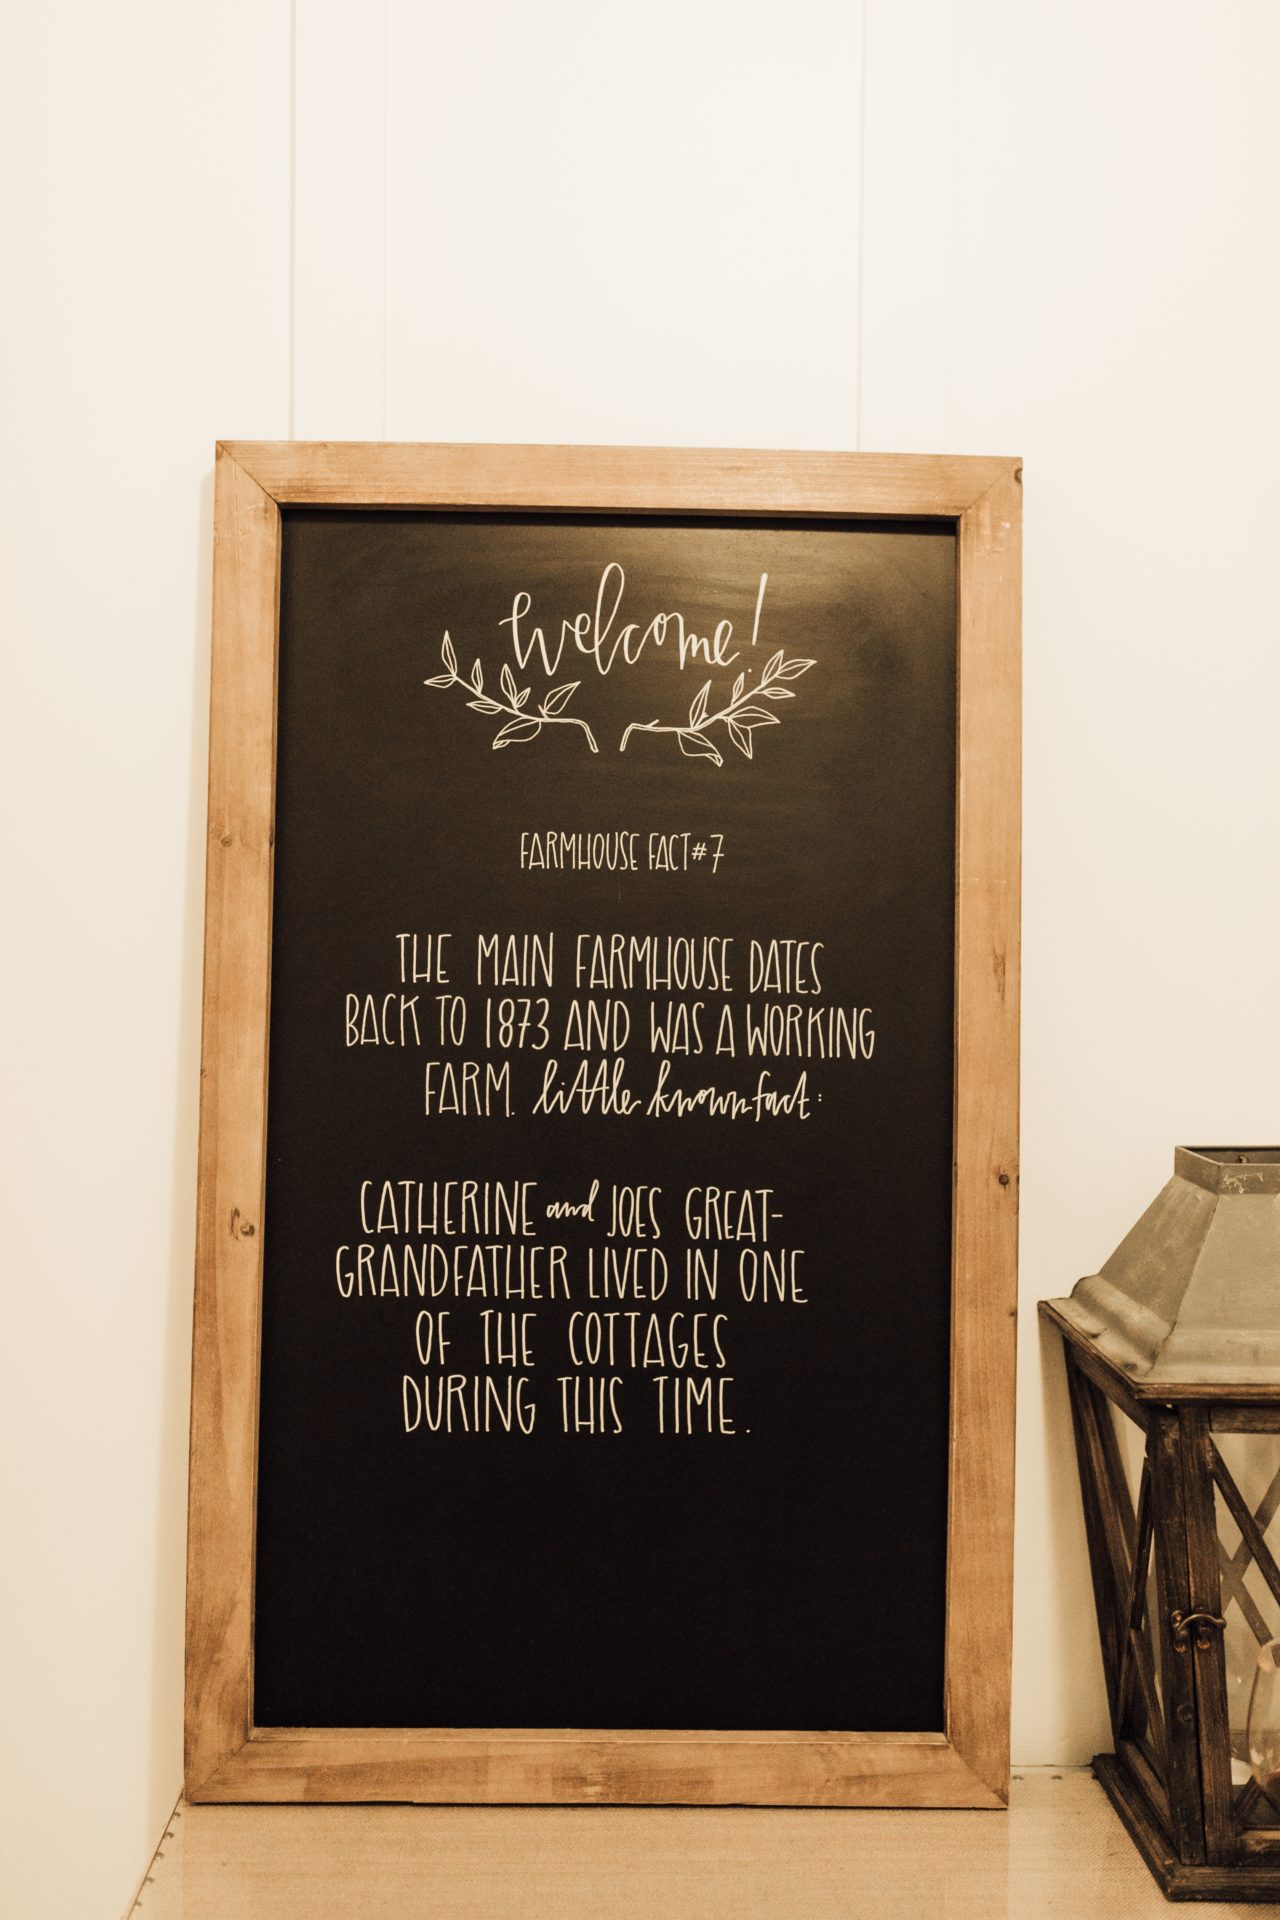 welcome!
FARMHOUSE FACT #7
THE MAIN FARMHOUSE DATES
BACK TO 1873 AND WAS A WORKING
FARM. little known fact:
CATHERINE and JOES GREAT-
GRANDFATHER LIVED IN ONE
OF THE COTTAGES
DURING THIS TIME.